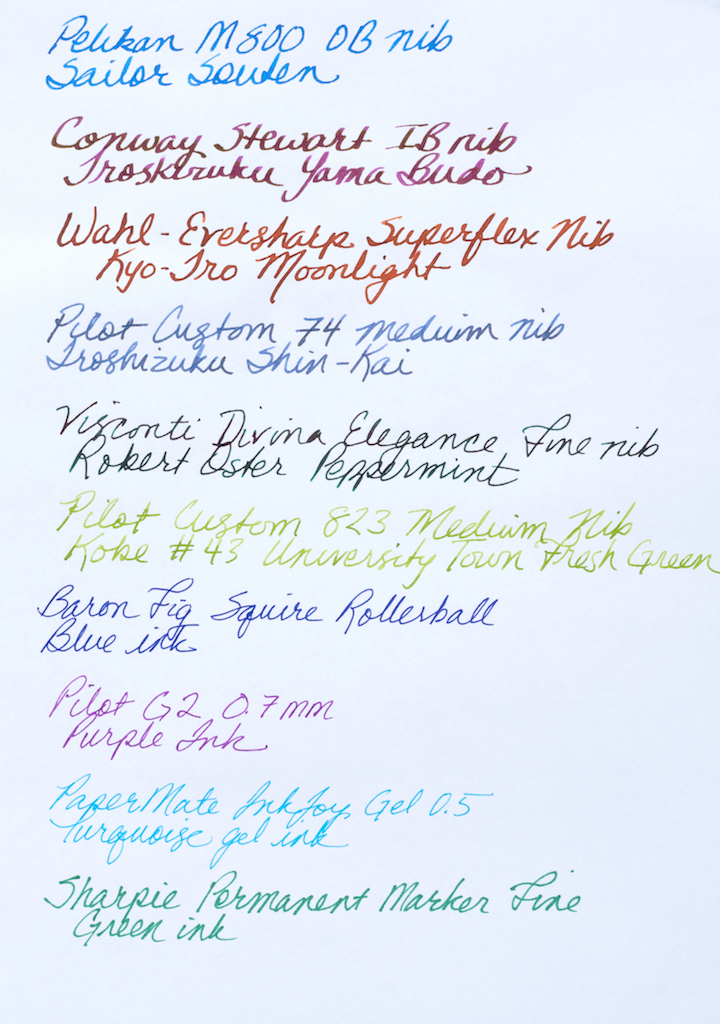 Pelikan M800 OB nib
Sailor Souten
Conway Stewart IB nib
Iroshizuku Yama Budo
Wahl-Eversharp Superflex Nib
Kyo-Iro Moonlight
Pilot Custom 74 medium nib
Iroshizuku Shin-Kai
Visconti Divina Elegance Fine nib
Robert Oster Peppermint
Pilot Custom 823 Medium Nib
Kobe #43 University Town Fresh Green
Baron Fig Squire Rollerball
Blue ink
Pilot G2 0.7mm
Purple Ink
PaperMate InkJoy Gel 0.5
Turquoise gel ink
Sharpie Permanent Marker Fine
Green ink